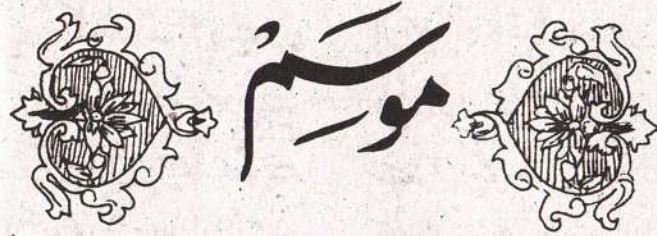 موسم